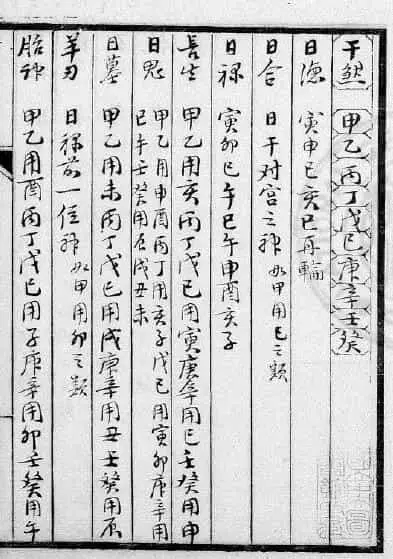 干煞 甲乙丙丁戊己庚辛壬癸
日德 寅申巳亥巳再輪
日合 日干对宫之神 如甲用己之類
日禄 寅卯巳午巳午申酉亥子
長生 甲乙用亥丙丁戊己用寅庚辛用巳壬癸用申
日鬼 甲乙用申酉丙丁用亥子戊己用寅卯庚辛用
巳午壬癸用辰戌丑未
日墓 甲乙用未丙丁戊己用戌庚辛用丑壬癸用辰
羊刃 日禄前一位神 如甲用卯之類
胎神 甲乙用酉丙丁戊己用子庚辛用卯壬癸用午